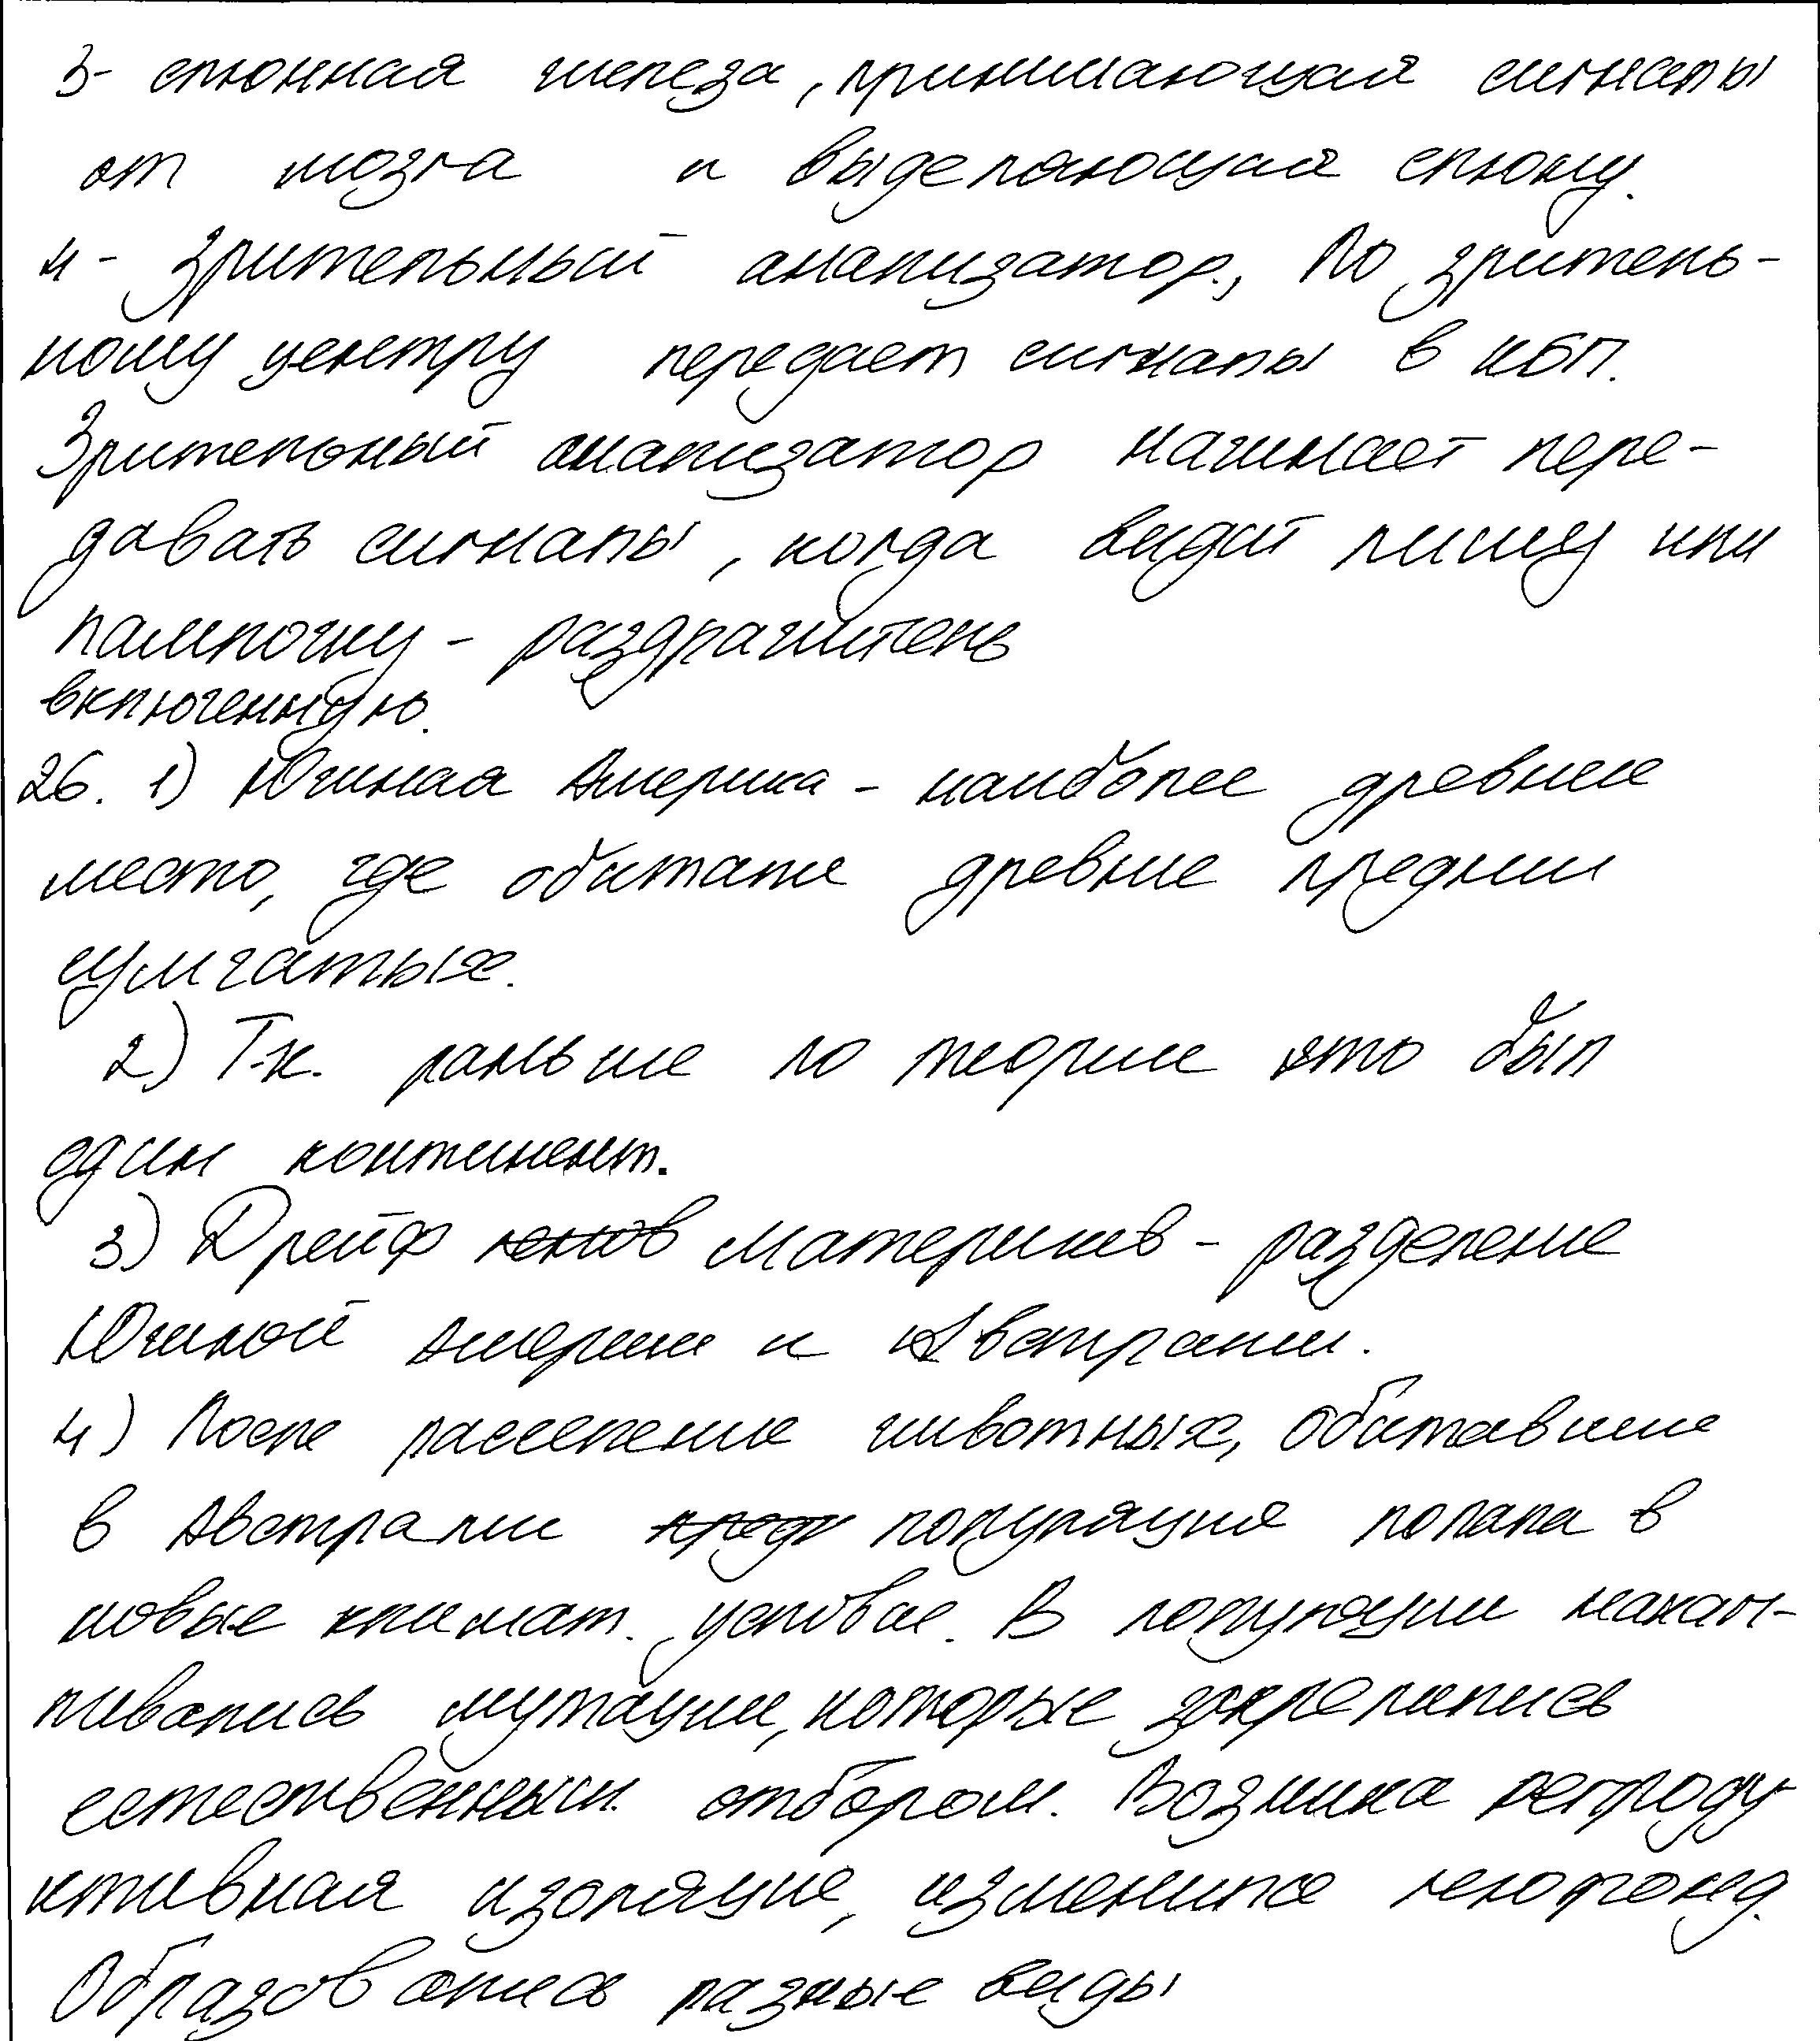 3- слюнная железа, принимающая сигналы
от мозга и выделяющая слюну.
4- Зрительный анализатор., По зритель-
ному центру передает сигналы в КБП.
Зрительный анализатор начинает пере-
давать сигналы, когда видит пищу или
лампочку - раздражитель
включенную.
26. 1) Южная Америка - наиболее древнее
место, где обитали древние предки
сумчатых.
2) Т.к. раньше по теории это был
один континент.
3) Дрейф генов материков - разделение
Южной Америки и Австралии.
4) После расселение животных, обитавшие
в Австралии пред популяция попала в
новые климат. условия. В популяции накап-
ливались мутации, которые закрепились
естественным отбором. Возникла репроду
ктивная изоляция, изменился генофонд.
Образовались разные виды